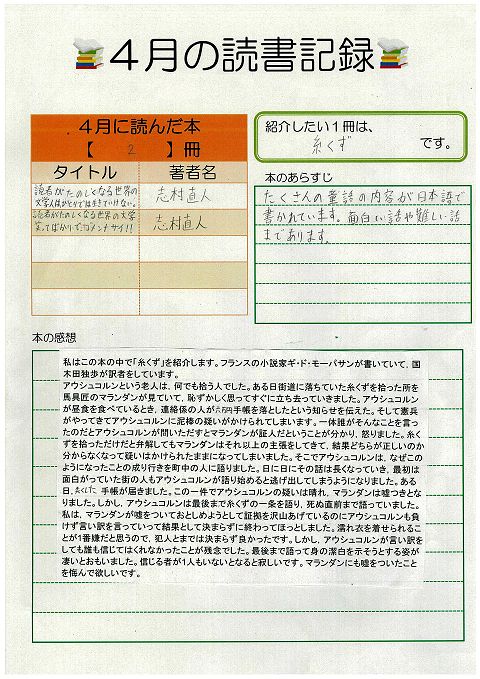 4月の読書記録
4月に読んだ本
【 2 】冊
タイトル 著者名
読者がたのしくなる世界の
文学人はひとりでは生きていけない。
志村直人
読者がたのしくなる世界の文学
志村直人
紹介したい1冊は、
糸くず です。
本のあらすじ
たくさんの童話の内容が日本語で
書かれています。面白い話や難しい話
まであります。
本の感想
私はこの本の中で「糸くず」を紹介します。フランスの小説家ギ・ド・モーパサンが書いていて、国
木田独歩が訳者をしています。
アウシュコルンという老人は、何でも拾う人でした。ある日街道に落ちていた糸くずを拾った所を
馬具匠のマランダンが見ていて、恥ずかしく思ってすぐに立ち去っていきました。アウシュコルン
が昼食を食べているとき、連絡係の人が手帳を落としたという知らせを伝えた。そして憲兵
がやってきてアウシュコルンに泥棒の疑いがかけられてしまいます。一体誰がそんなことを言っ
たのだとアウシュコルンが問いただすとマランダンが証人だということが分かり、怒りました。糸く
ずを拾っただけだと弁解してもマランダンはそれ以上の主張をしてきて、結果どちらが正しいのか
分からなくなって疑いはかけられたままになってしまいました。そこでアウシュコルンは、なぜこの
ようになったことの成り行きを町中の人に語りました。日に日にその話は長くなっていき、最初は
面白がっていた街の人もアウシュコルンが語り始めると逃げ出してしまうようになりました。ある
日、失くした 手帳が届きました。この一件でアウシュコルンの疑いは晴れ、マランダンは嘘つきとな
りました。しかし、アウシュコルンは最後まで糸くずの一条を語り、死ぬ直前まで語っていました。
私は、マランダンが嘘をついておとしめようとして証拠を沢山あげているのにアウシュコルンも負
けず言い訳を言っていって結果として決まらずに終わってほっとしました。濡れ衣を着せられるこ
とが1番嫌だと思うので、犯人とまでは決まらず良かったです。しかし、アウシュコルンが言い訳を
しても誰も信じてはくれなかったことが残念でした。最後まで語って身の潔白を示そうとする姿が
凄いとおもいました。信じる者が1人もいないとなると寂しいです。マランダンにも嘘をついたこと
を悔んで欲しいです。